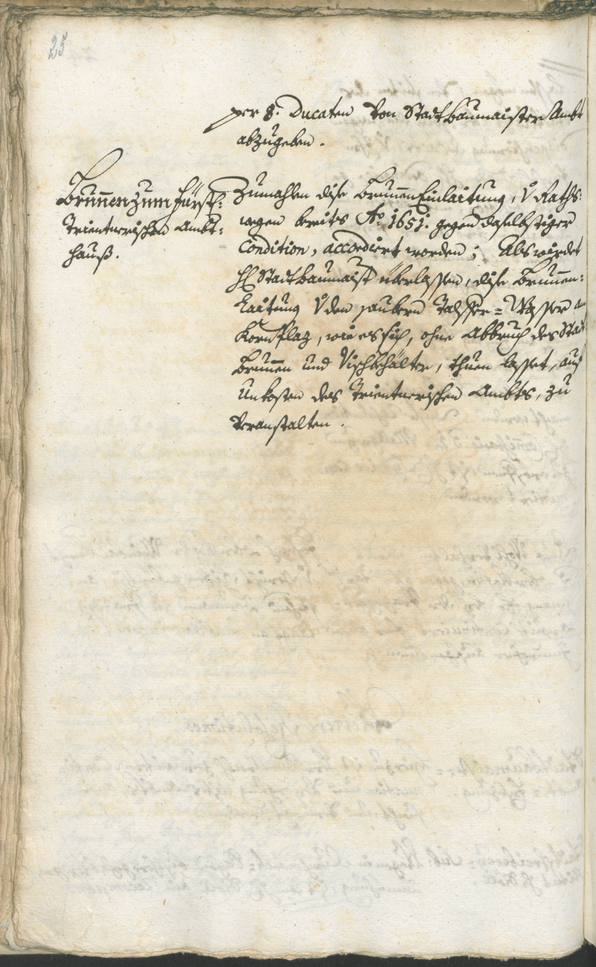 25
per 8. Ducaten von Stadtbaumaister Ambt
abzugeben.
Brunnen zum Fürst:
Trienterischen Ambt:
hauß.
Zumahlen dise BrunnenEinlaitung, v. Raths
wegen bereits Aº 1651. gegen daselbstiger
Condition, accordiert worden; Als würdet
H. Stadtbaumaister überlassen, dise Brunnen:
laitung v. den saubern Talffer=Wasser am
Kornplaz, wie es sich, ohne Abbruch des Stadt
Brunnen und Vischbehälter, thuen lasset, auf
Unkosten des Trienterischen Ambts, zu
veranstalten.